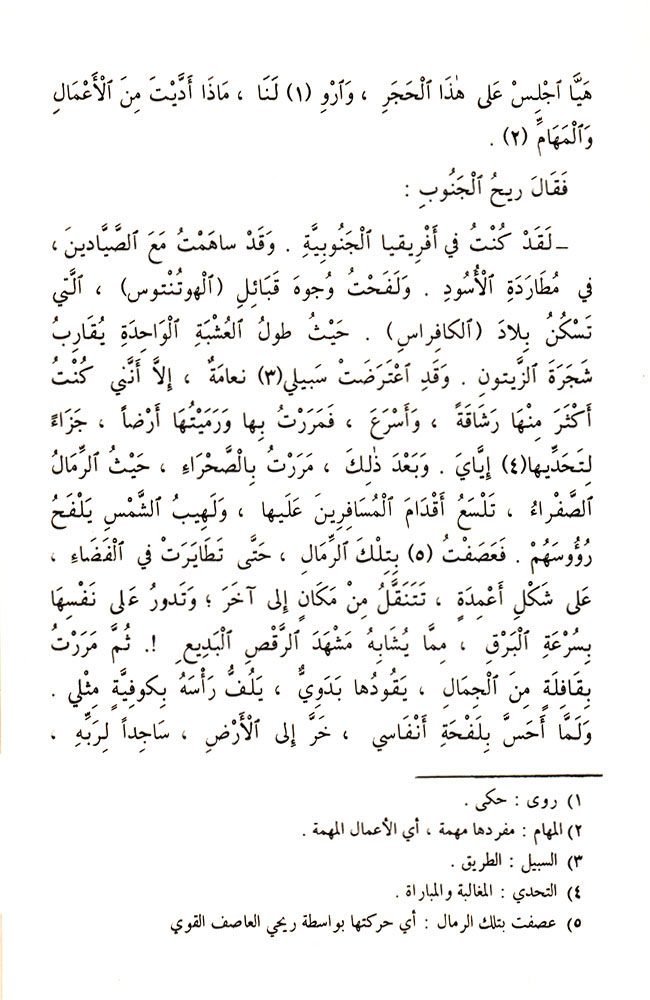 هَيَّا ٱجْلِسْ عَلى هٰذَا ٱلْحَجَرِ ، وَٱرْوِ (١) لَنَا ، مَاذَا أَدَّيْتَ مِنَ ٱلْأَعْمَالِ
وَٱلْمَهَامِّ (٢) .
فَقَالَ ريحُ ٱلْجَنُوبِ :
ــ لَقَدْ كُنْتُ في أَفْريقيا ٱلْجَنُوبِيَّةِ . وَقَدْ ساهَمْتُ مَعَ ٱلصَّيَّادينَ ،
في مُطَارَدَةِ ٱلْأُسُودِ . وَلَفَحْتُ وُجوهَ قَبَائِلِ (ٱلْهوتُنْتوس) ، ٱلَّتي
تَسْكُنُ بِلادَ (ٱلكافِراس) . حَيْثُ طولُ ٱلعُشْبَةِ ٱلْوَاحِدَةِ يُقَارِبُ
شَجَرَةَ ٱلزَّيتونِ . وَقَدِ ٱعْتَرَضَتْ سَبيلي(٣) نعامَةٌ ، إِلاَّ أَنَّني كُنْتُ
أَكْثَرَ مِنْهَا رَشَاقَةً ، وَأَسْرَعَ ، فَمَرَرْتُ بِها وَرَمَيْتُهَا أَرْضاً ، جَزَاءً
لِتَحَدِّيها(٤) إِيَّايَ . وَبَعْدَ ذٰلِكَ ، مَرَرْتُ بِالْصَّحْرَاءِ ، حَيْثُ ٱلرِّمَالُ
ٱلصَّفْراءُ ، تَلْسَعُ أَقْدَامَ ٱلْمُسَافِرِينَ عَلَيها ، وَلَهيبُ ٱلشَّمْسِ يَلْفَحُ
رُؤُوسَهُمْ . فَعَصَفْتُ (٥) بِتِلْكَ ٱلرِّمَالِ ، حَتَّى تَطَايَرَتْ في ٱلْفَضَاءِ ،
عَلى شَكْلِ أَعْمِدَةٍ ، تَتَنَقَّلُ مِنْ مَكَانٍ إِلى آخَرَ ؛ وَتَدورُ عَلى نَفْسِهَا
بِسُرْعَةِ ٱلْبَرْقِ ، مِمَّا يُشَابِهُ مَشْهَدَ ٱلرَّقْصِ ٱلْبَديعِ !. ثُمَّ مَرَرْتُ
بِقَافِلَةٍ مِنَ ٱلْجِمَالِ ، يَقُودُها بَدَوِيٌّ ، يَلُفُّ رَأْسَهُ بِكوفِيَّةٍ مِثْلي .
وَلَمَّا أَحَسَّ بِلَفْحَةِ أَنْفَاسي ، خَرَّ إِلى ٱلْأَرْضِ ، سَاجِداً لِرَبِّهِ ،
١) روى : حكى .
٢) المهام : مفردها مهمة ، أي الأعمال المهمة .
٣) السبيل : الطريق .
٤) التحدي : المغالبة والمباراة .
٥) عصفت بتلك الرمال : أي حركتها بواسطة ريحي العاصف القوي